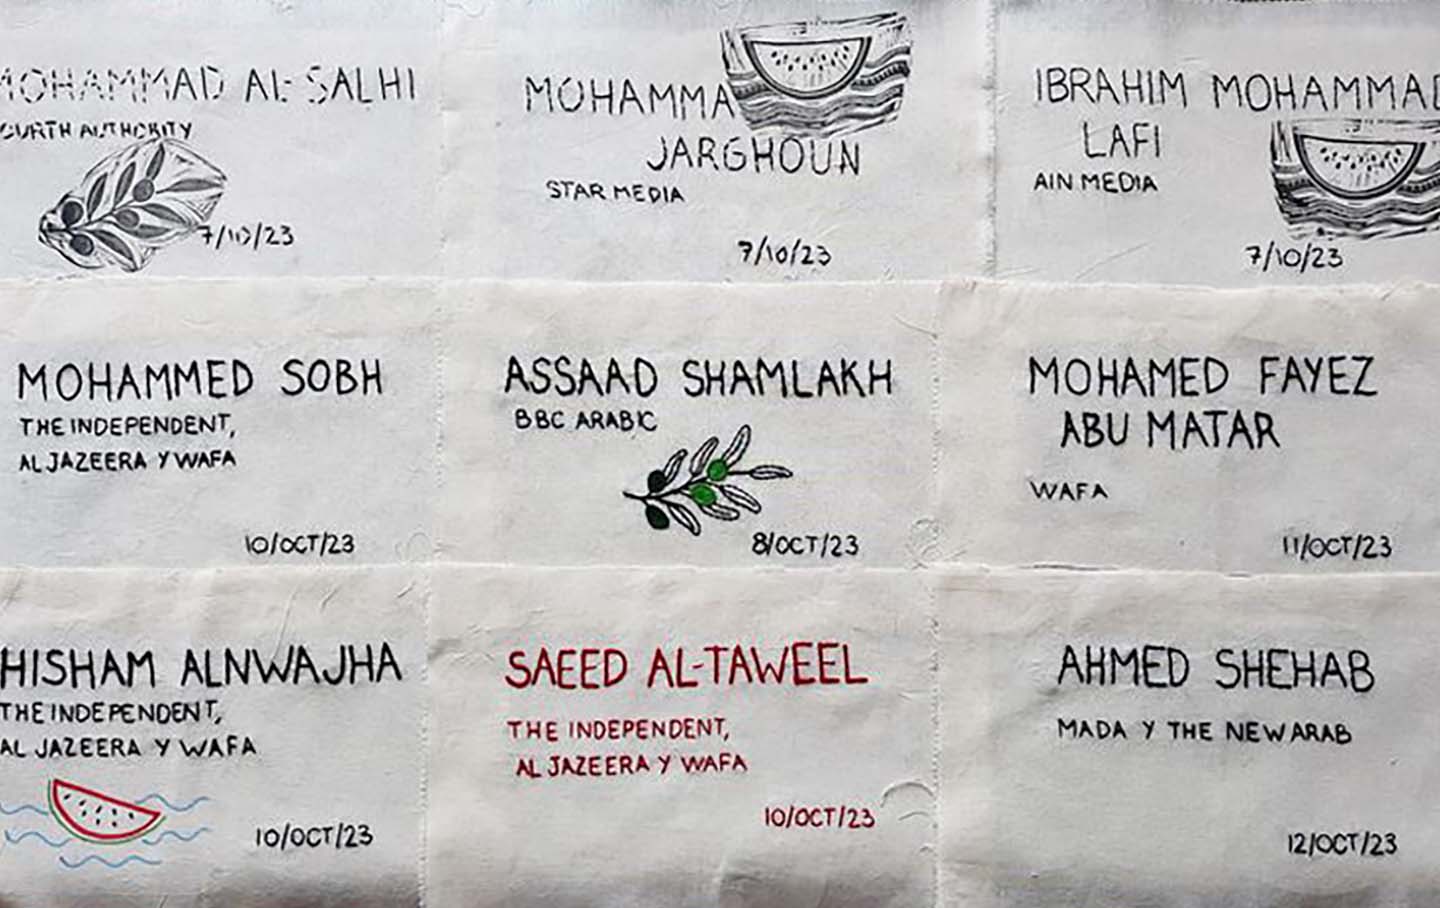 MOHAMMAD AL-SALHI
FOURTH AUTHORITY
7/10/23
MOHAMMA
JARGHOUN
STAR MEDIA
7/10/23
IBRAHIM MOHAMMAD
LAFI
AIN MEDIA
7/10/23
MOHAMMED SOBH
THE INDEPENDENT,
AL JAZEERA Y WAFA
10/OCT/23
ASSAAD SHAMLAKH
BBC ARABIC
8/OCT/23
MOHAMED FAYEZ
ABU MATAR
WAFA
11/OCT/23
HISHAM ALNWAJHA
THE INDEPENDENT,
AL JAZEERA Y WAFA
10/OCT/23
SAEED AL-TAWEEL
THE INDEPENDENT,
AL JAZEERA Y WAFA
10/OCT/23
AHMED SHEHAB
MADA Y THE NEW ARAB
12/OCT/23